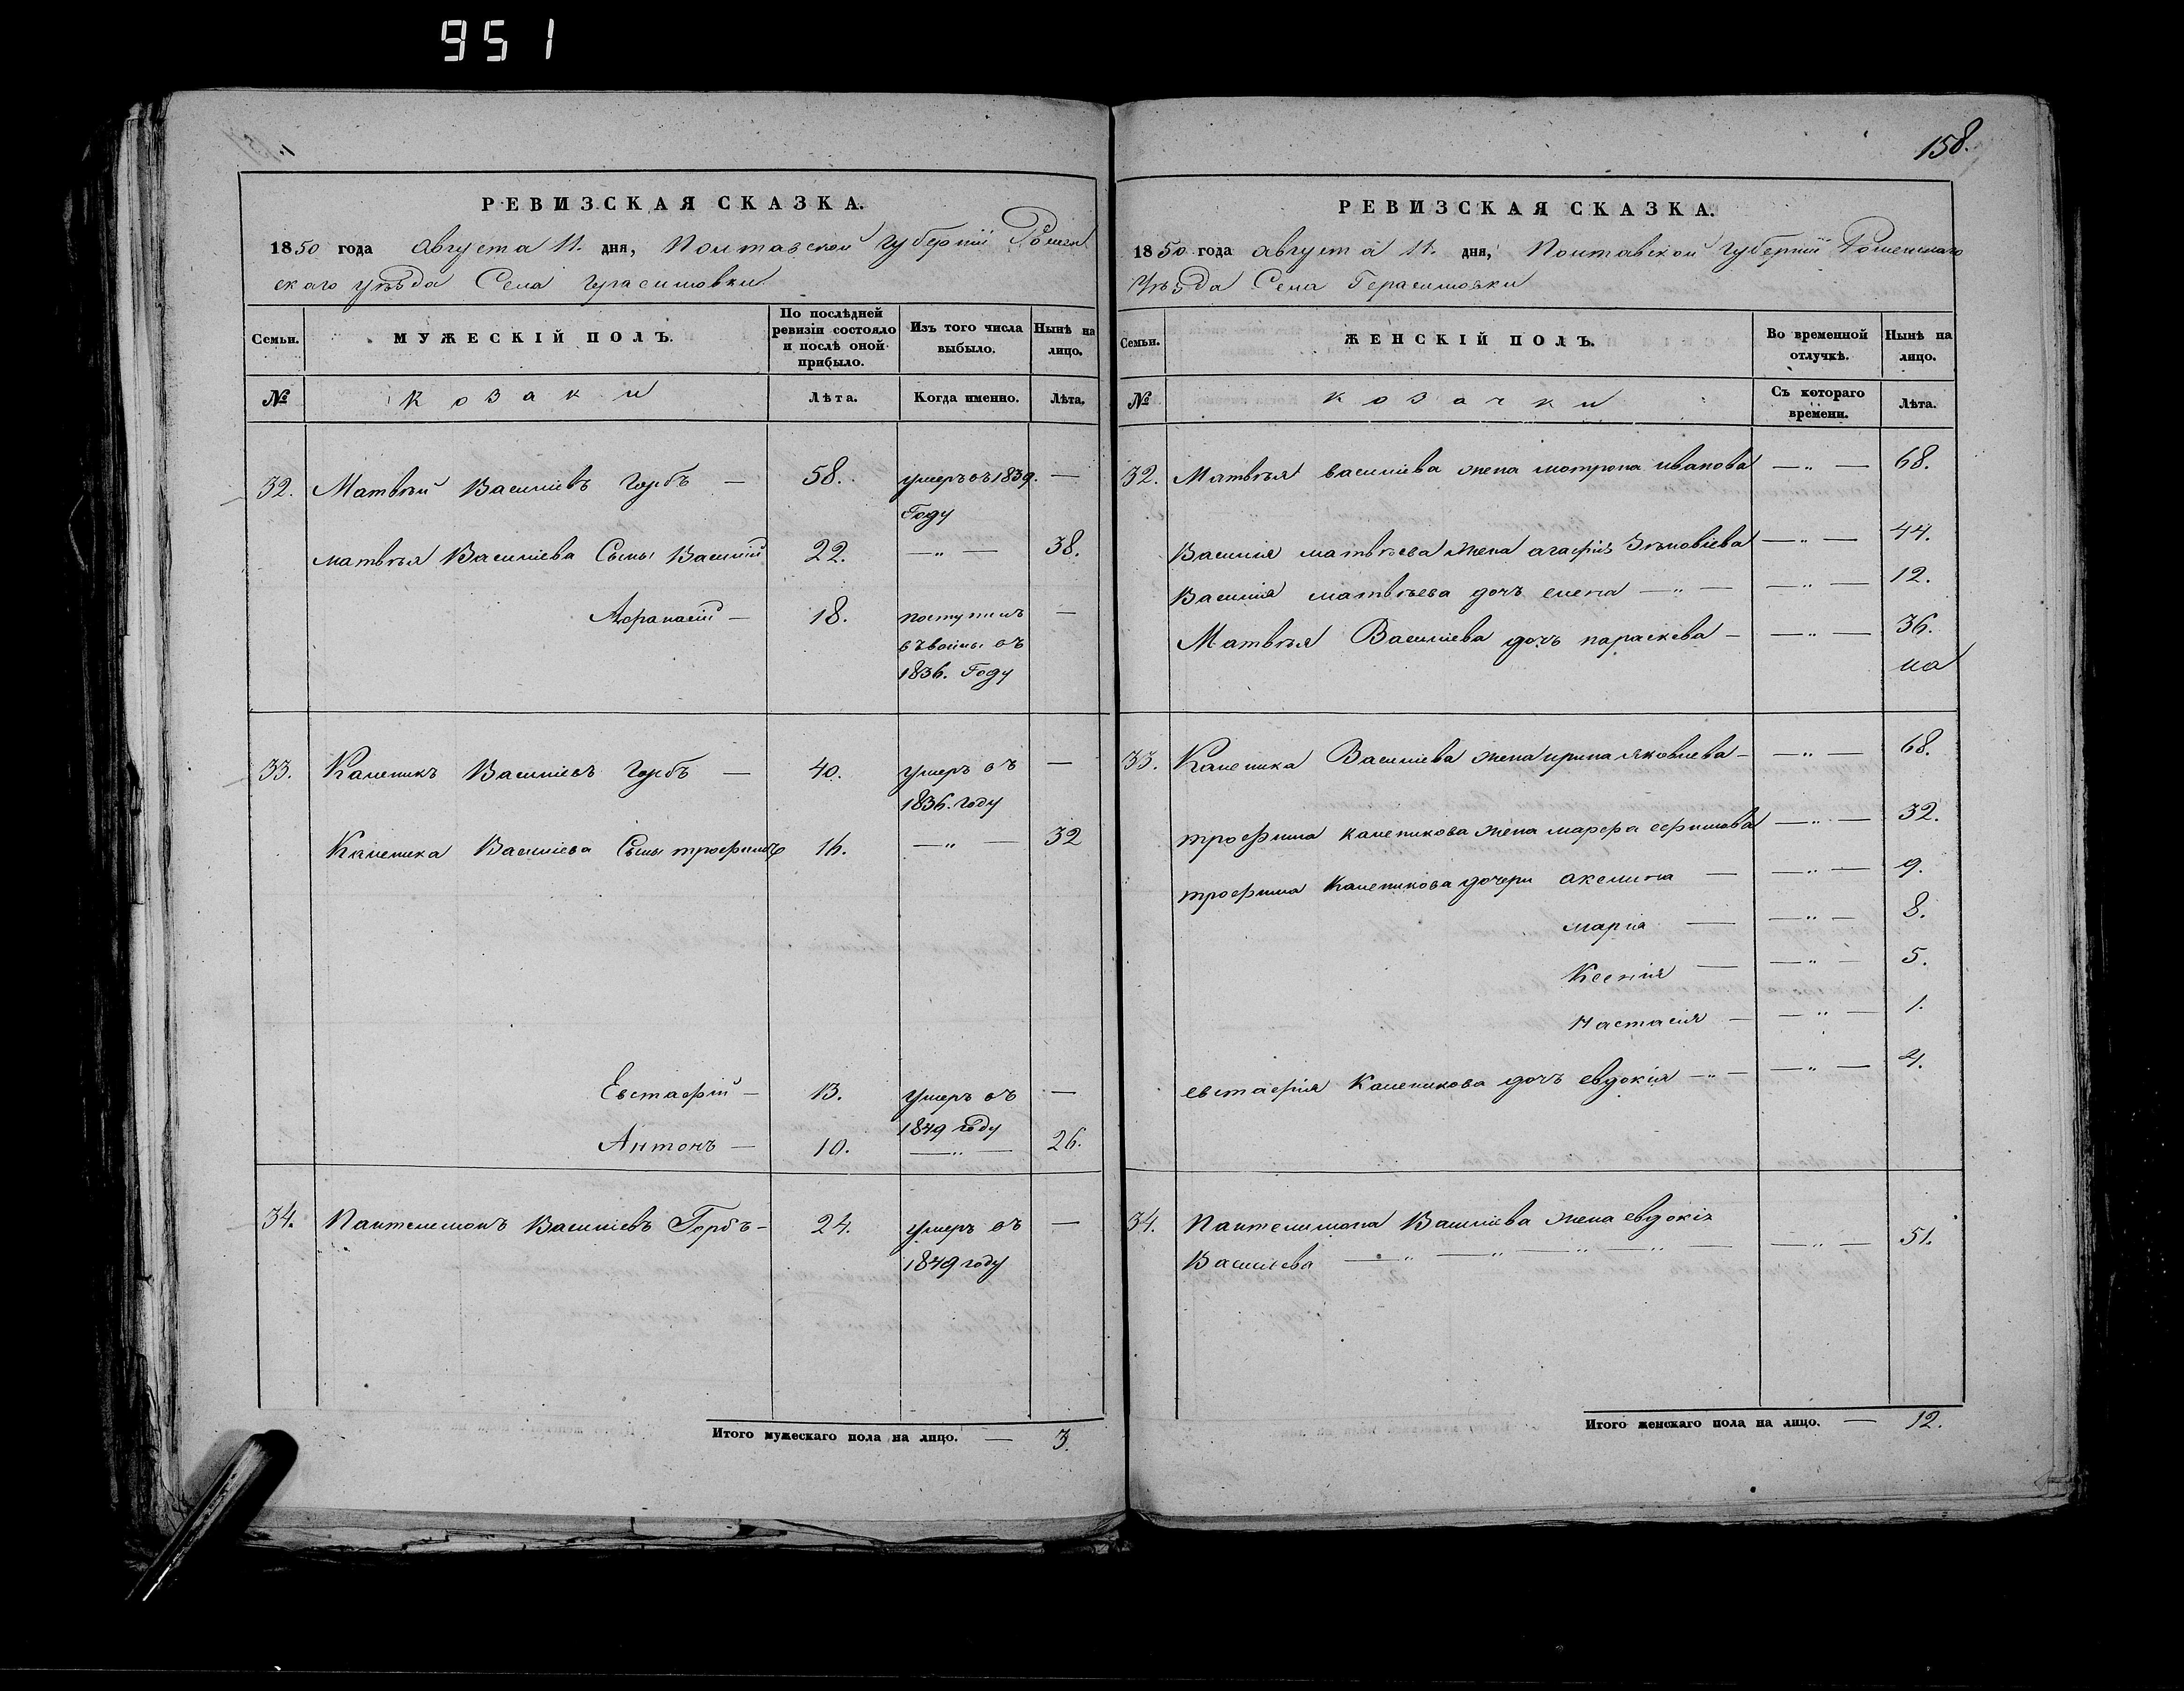 951
158.
РЕВИЗСКАЯ СКАЗКА.
1850 года августа 11. дня, Полтавской губернїи Ромен
скаго уѣзда Села Герасимовки
Семьи. МУЖЕСКІЙ ПОЛЪ. По послѣдней ревизіи состояло и послѣ оной прибыло. Изъ того числа выбыло. Нынѣ на лицо.
№ козаки Лѣта. Когда именно. Лѣта.
32. Матвѣй Василіевъ Горбъ — 58. умеръ въ 1839. —
Году
матвѣя Василіева Сыны Василій 22. —„— 38.
Афанасій — 18. поступилъ —
въ
1836. Году
33. Каленикъ Василіевъ Горбъ — 40. умеръ въ —
1836. году
Каленика Василіева Сыны трофимъ 16. —„— 32
Евстафій — 13. умеръ въ —
1849 году
Антонъ — 10. —„— 26.
34. Пантелемонъ Василіевъ Горбъ — 24. умеръ въ —
1849 году
Итого мужескаго пола на лицо. — 3.
РЕВИЗСКАЯ СКАЗКА.
1850 года августа 11. дня, Полтавской губернїи Роменскаго
Уѣзда Села Герасимовки
Семьи. ЖЕНСКІЙ ПОЛЪ. Во временной отлучкѣ. Нынѣ на лицо.
№ козачки Съ котораго времени. Лѣта.
32. Матвѣя василіева жена мотрона иванова —„— 68.
Василія матвѣева жена агафія Зѣновіева —„— 44.
Василія матвѣева дочь елена —„— —„— 12.
Матвѣя Василіева дочь параскева — —„— 36.
на
33. Каленика Василіева жена ирина яковлева — —„— 68.
трофима каленикова жена марфа ефимова —„— 32.
трофима Каленикова дочери акелина — —„— 9.
марія — —„— 8.
Ксенія — —„— 5.
Настасія — —„— 1.
евстафія Каленикова дочь евдокія —„— —„— 4.
34. Пантелимона Василіева жена евдокія
Василева —„—„—„—„— —„— 51.
Итого женскаго пола на лицо. — 12.